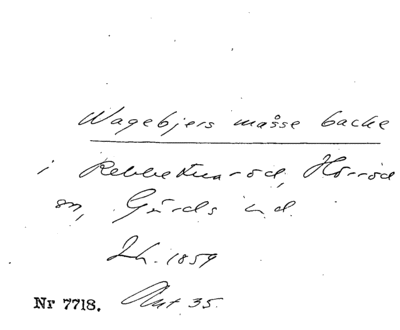 Wagebjers måsse backe
i Rebbetuaröd, Hörröd
sn, Gärds hd.
Lh. 1859
Nr 7718. Akt 35.